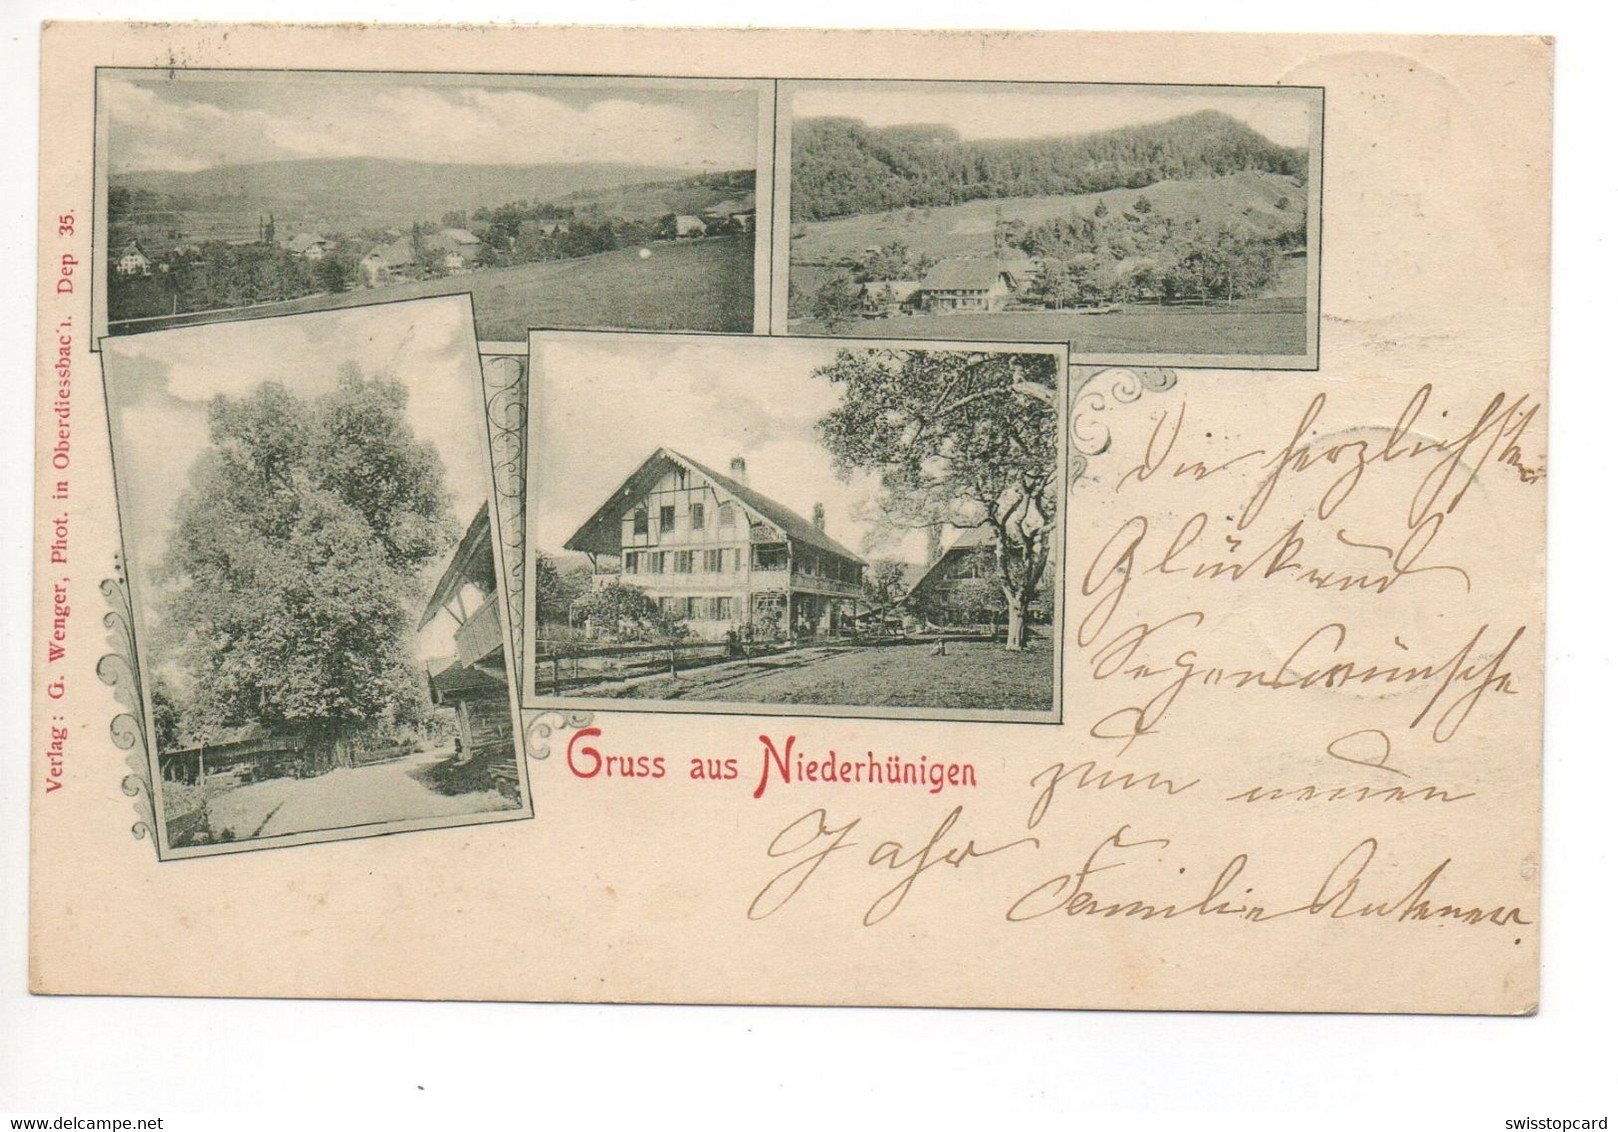 Verlag: G. Wenger, Phot. in Oberdiessbach. Dep 35.
Gruss aus Niederhünigen
Die herzlichsten
Glück und
Segenswünsche
zum neuen
Jahr Familie
delcampe.net
swisstopcard